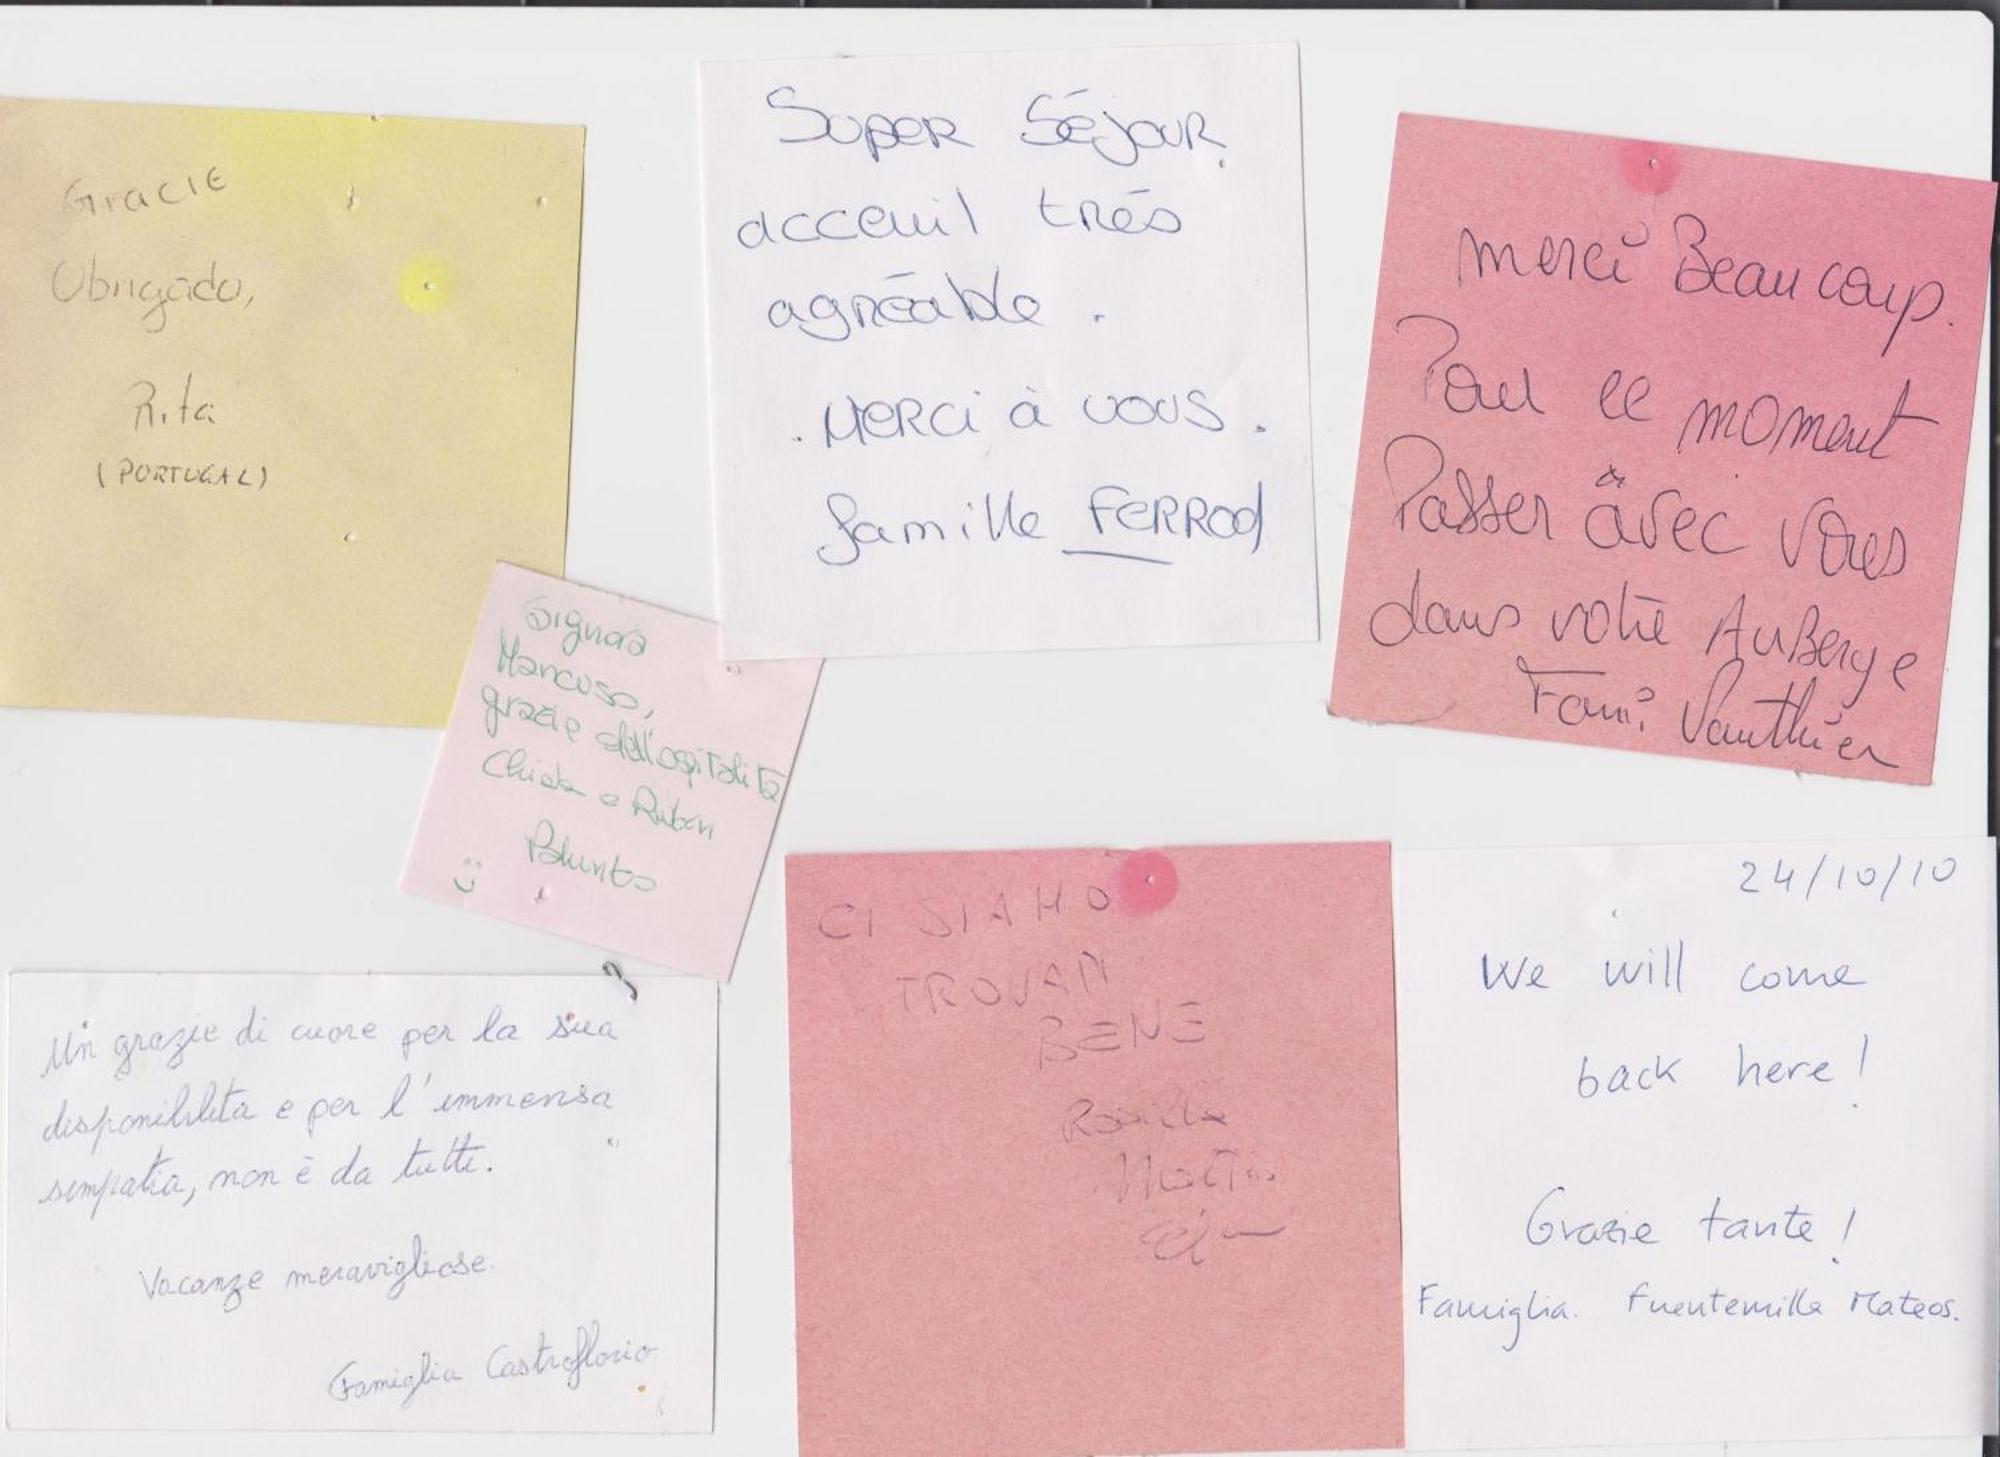 Gracie
Obrigado,
Rita
(PORTUGAL)
Super Séjour.
acceuil trés
agréable.
. Merci à vous.
famille FERROD
merci Beaucoup.
Pour ce moment
Passer avec vous
dans votre AuBerge
Fami Vauthier
Signora
Mancuso,
grazie dell'ospitalità
Chiara e Ruben
:)
Un grazie di cuore per la sua
disponibilita e per l'immensa
simpatia, non è da tutti.
Vacanze meravigliose.
Famiglia Castroflorio
CI SIAMO
TROVATI
BENE
Rosella
Mattia
24/10/10
We will come
back here!
Grazie tante!
Famiglia. Fuentemilla Mateos.